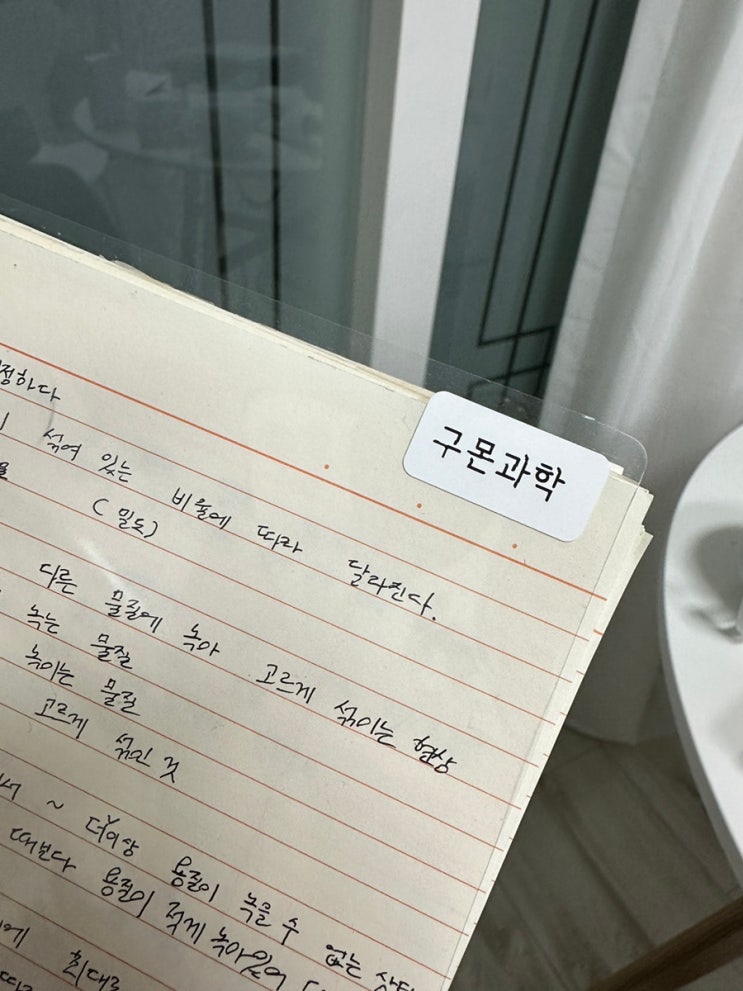 구몬과학
정하다
섞여 있는 비율에 따라 달라진다.
(밀도)
다른 물질에 녹아 고르게 섞이는 현상
녹는 물질
녹이는 물질
고르게 섞인 것
서 ~ 더이상 용질이 녹을 수 없는 상태
때보다 용질이 적게 녹아있어
에 최대로